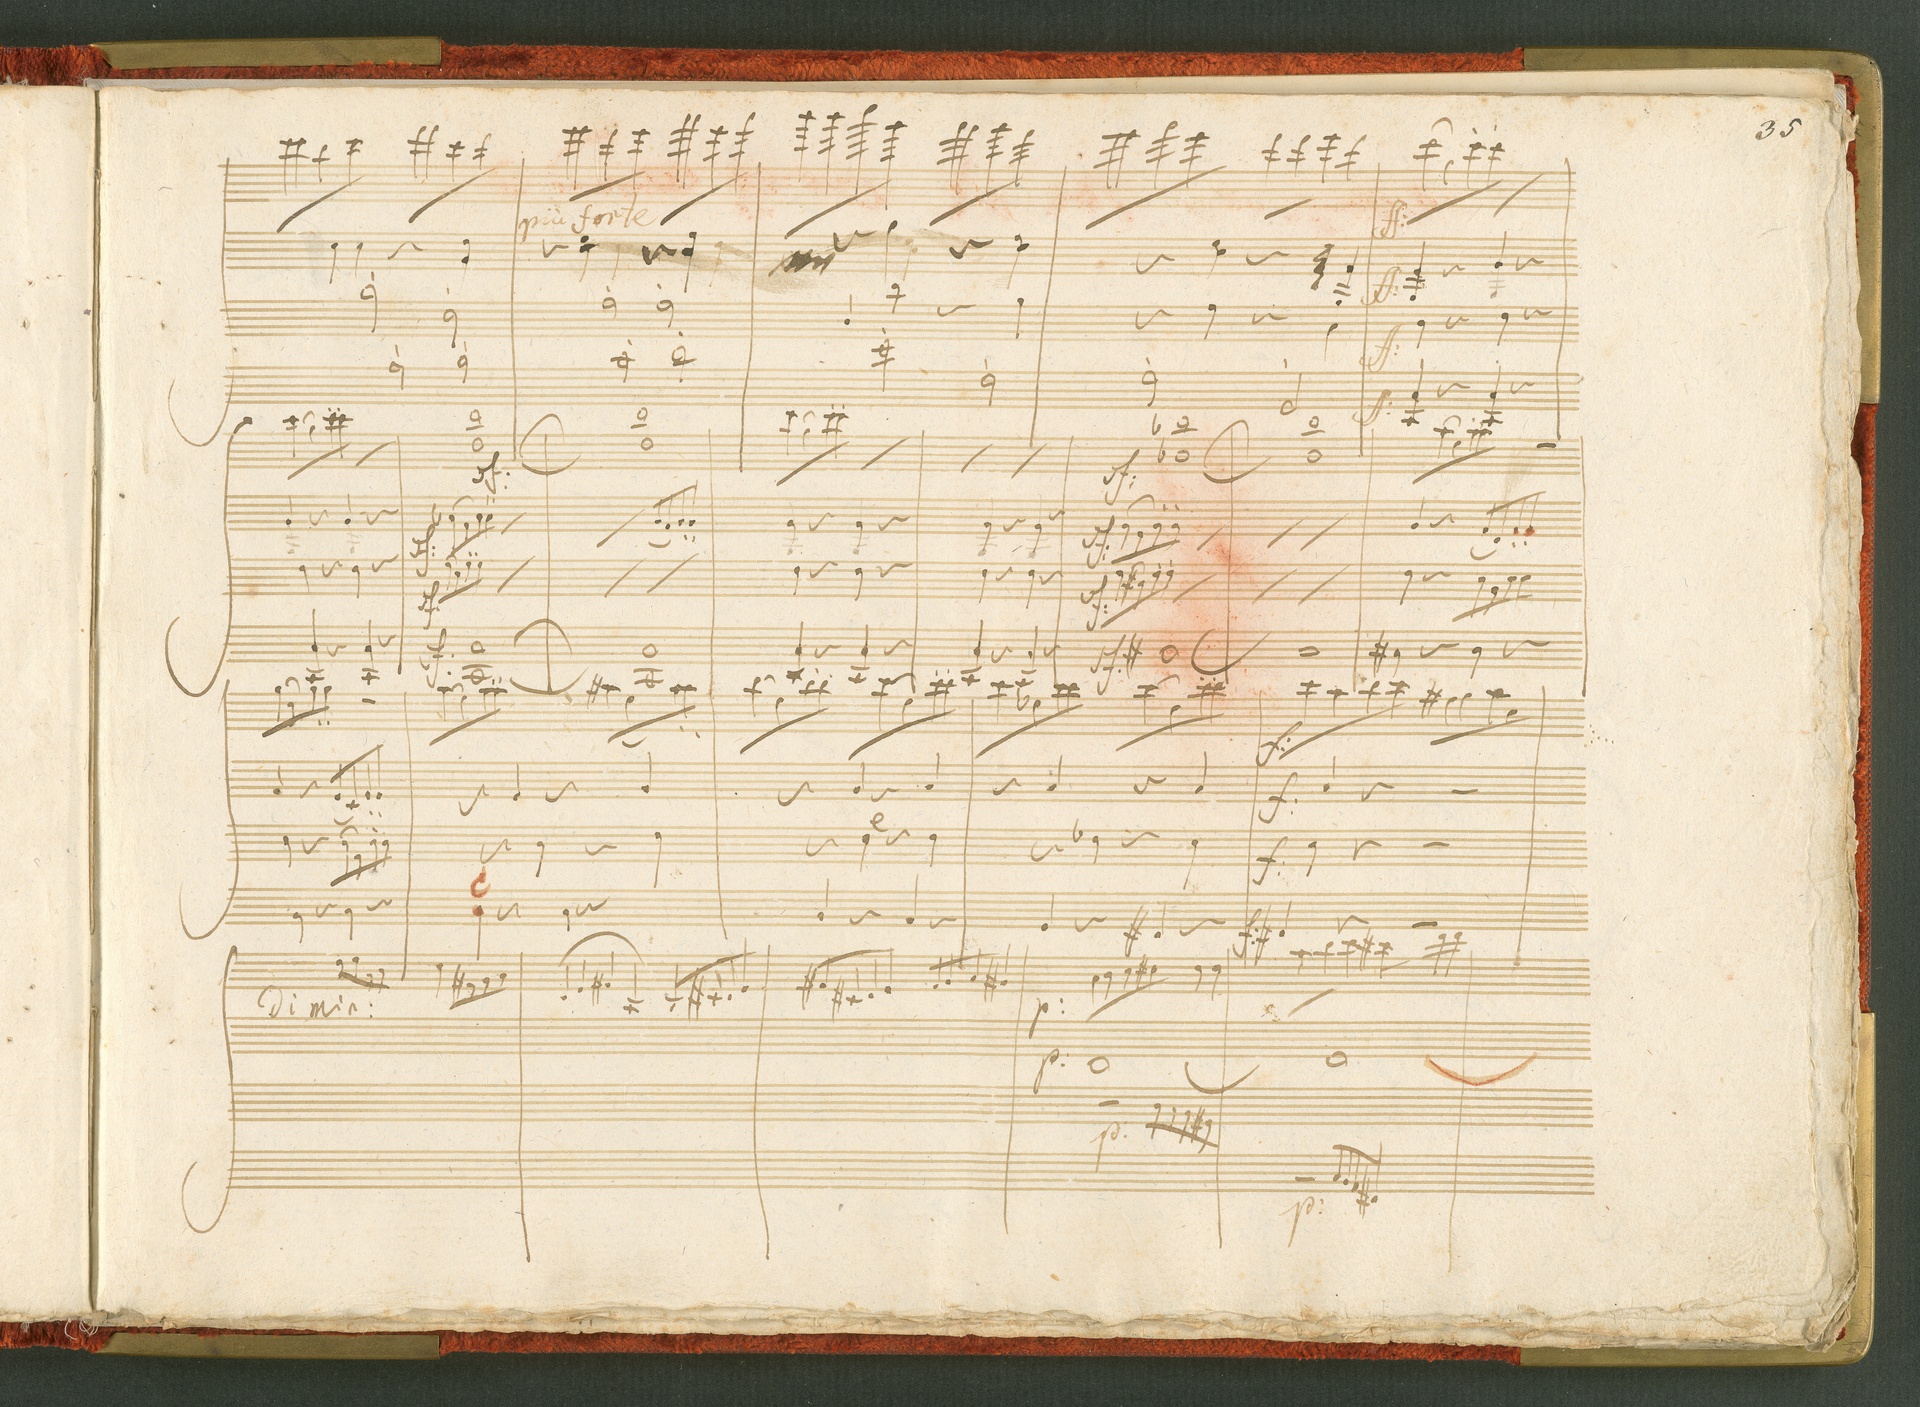 35
più forte
ff:
ff:
ff:
ff:
sf:
sf:
sf:
sf:
sf:
sf:
sf:
sf:
f:
e
f:
f:
c
f:
Dimin:
p:
p:
p:
p: